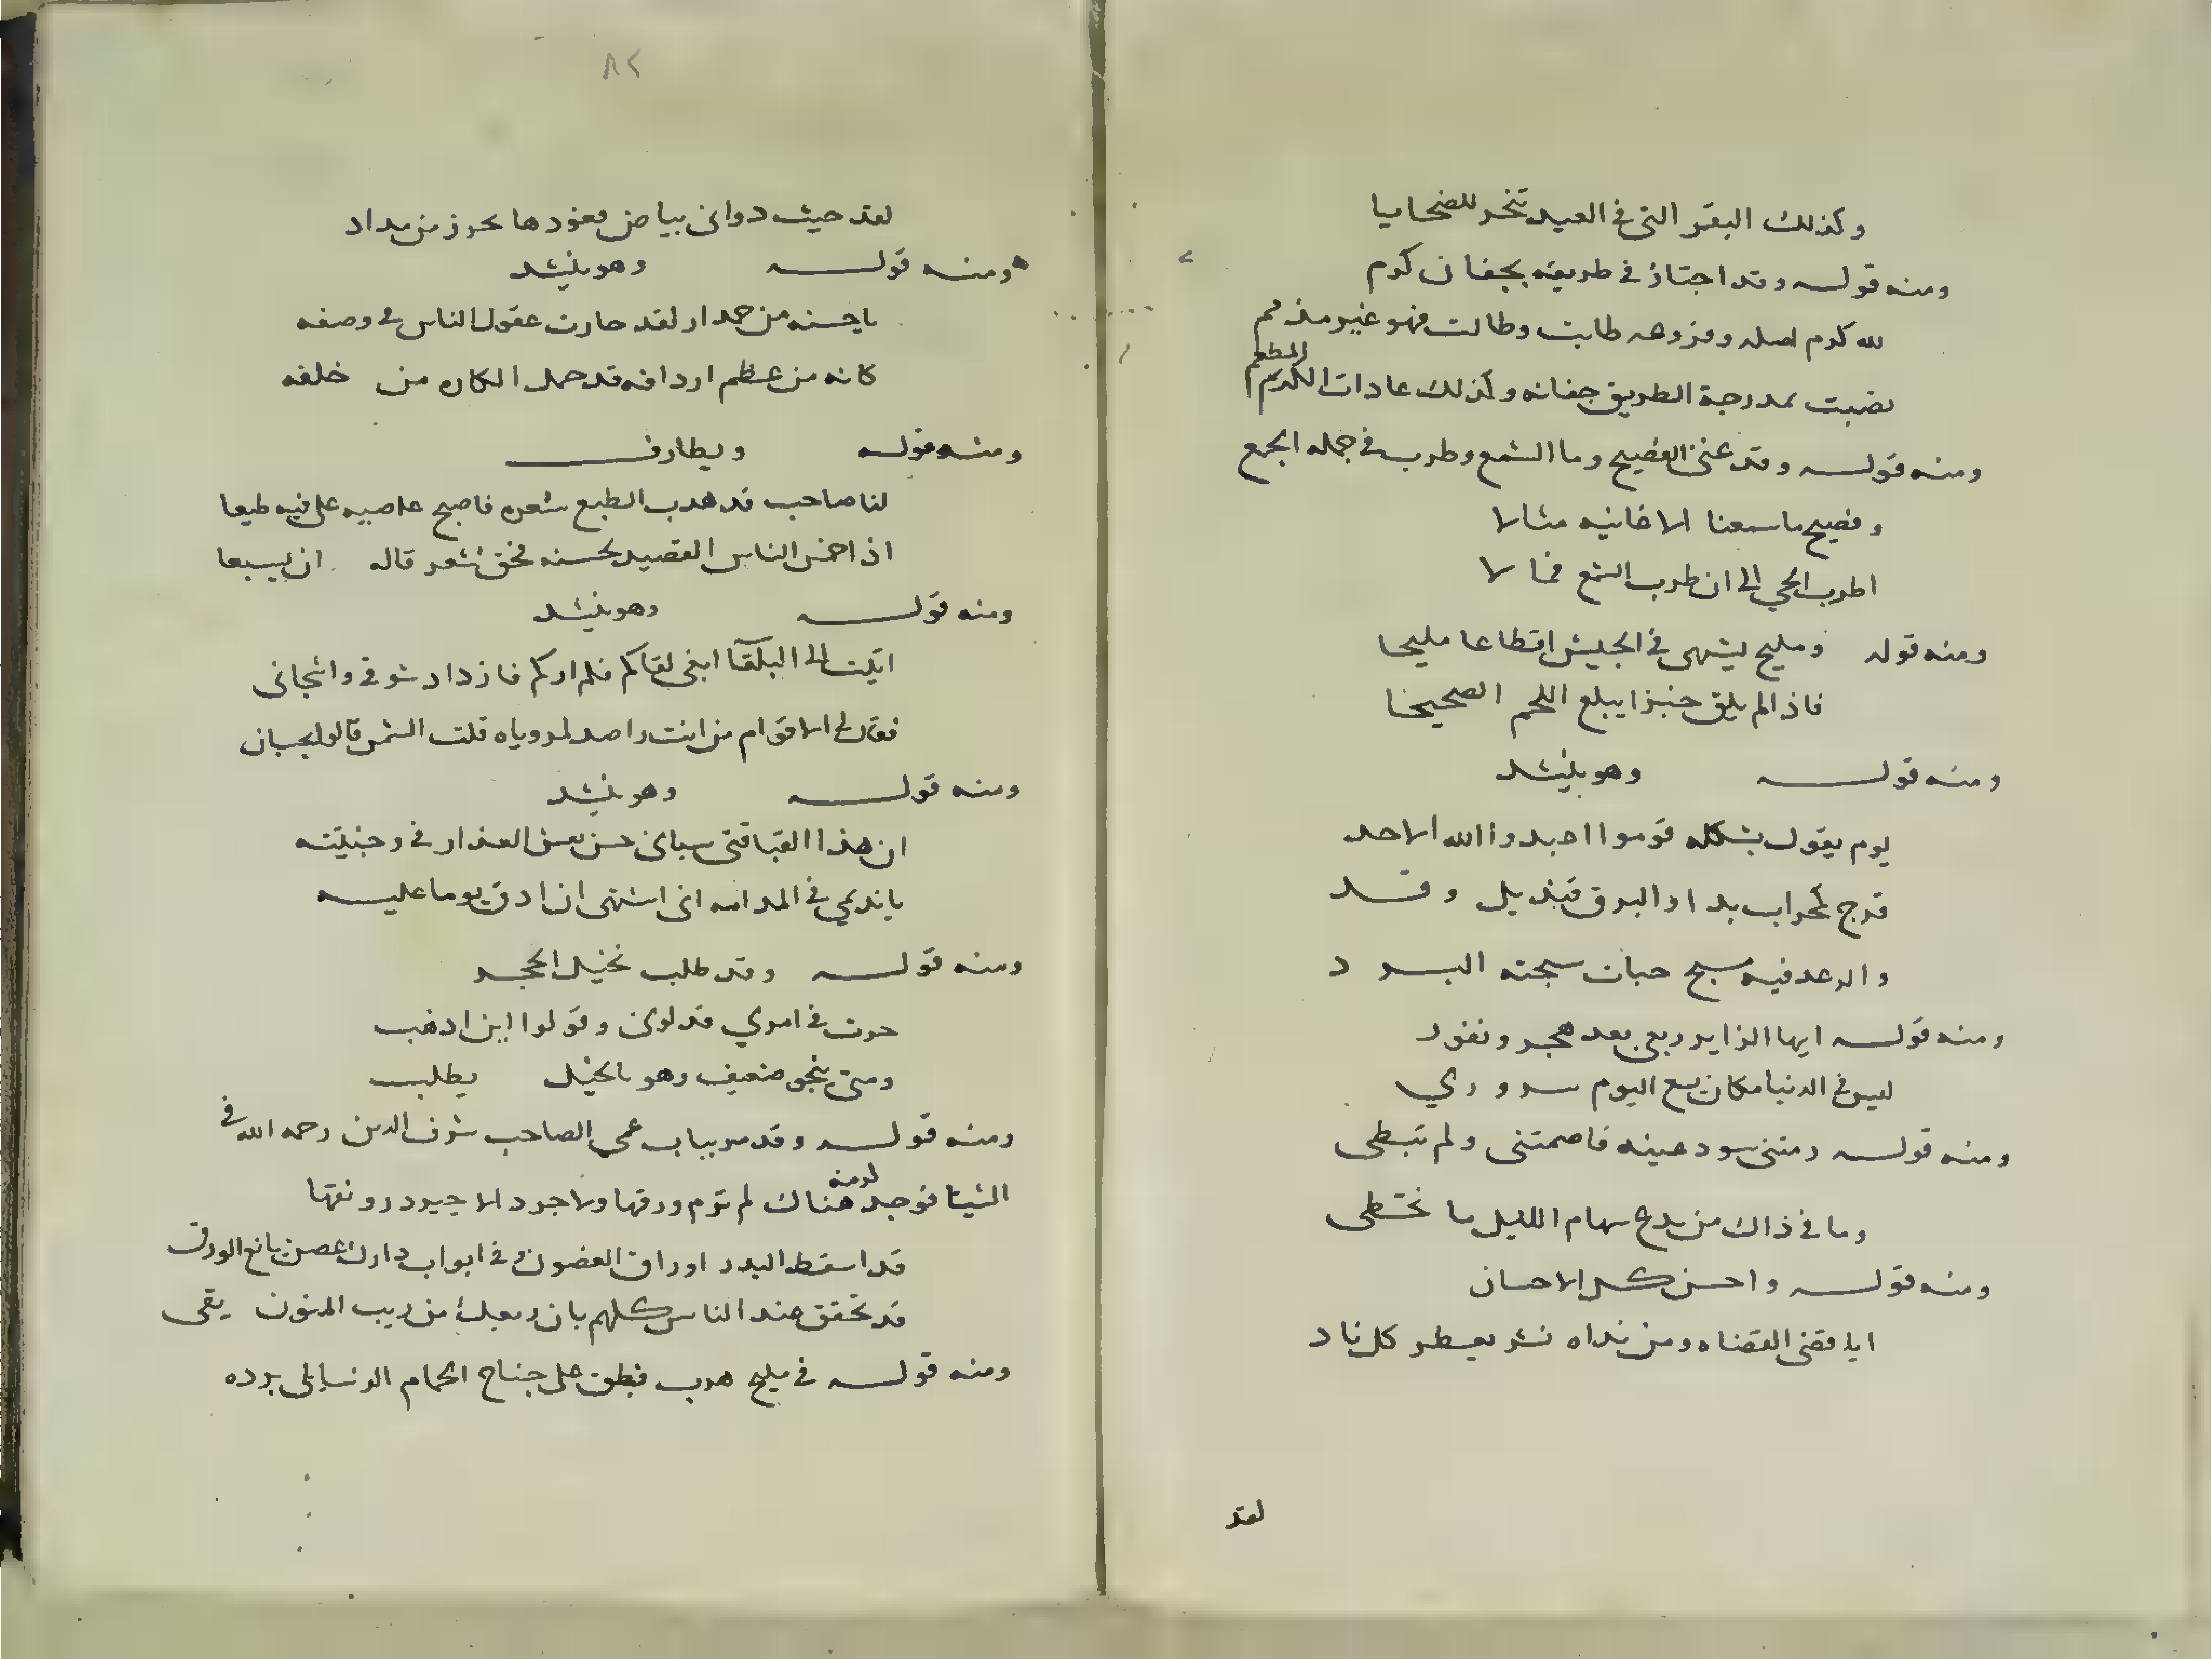 وكذلك البقر التى فى العيد تنحر للضحايا
ومنه قوله وقد اجتاز فى طريقه بجفان كرم
لله كرم اصله وفروعه طابت وطالت فهو غير مذمم
نصبت بمدرجة الطريق جفانه وكذلك عادات الكريم المطعم
ومنه قوله وقد غنى الفصيح وما الشمع وطرب فى جملة الجمع
وفصيح ما سمعنا لاغانيه مثالا
اطرب الحي الى ان طرب الشمع فمالا
ومنه قوله ومليح يشتهى فى الجيش اقطاعا مليحا
فاذا لم يلق خبزا يبلع اللحم الصحيحا
ومنه قوله وهو ينشد
يوم يقول بشكله قوموا اعبدوا الله الاحد
قزح كمحراب بدا والبرق قنديل وقد
والرعد فيه مسبح حبات سبحته البرد
ومنه قوله ايها الزاير ربعى بعد هجر ونفور
ليس فى الدنيا مكان يسع اليوم سروري
ومنه قوله رمتنى سود عينه فاصمتنى ولم تبطى
وما فى ذاك من بدع سهام الليل ما تخطى
ومنه قوله واحسن كل الاحسان
ايا قضى القضاه ومن نداه نشر يعطر كل ناد
لقد
٨٢
لقد حيث دوانى بياض فعوذها بحرز من مداد
ومنه قوله وهو ينشد
يا حسنه من حمدار لقد حارت عقول الناس فى وصفه
كانه من عظم اردافه قد حمل الكاره من خلفه
ومنه قوله ويطارف
لنا صاحب قد هدب الطبع شعره فاصبح عاصيه على فيه طيعا
اذا خمس الناس القصيد لحسنه فحق لشعر قاله ان يسبعا
ومنه قوله وهو ينشد
اتيت الى البلقآ ابغى لقاكم فلم اركم فازداد شوقى واشجانى
فقال لى الاقوام من انت راصد لروياه قلت الشمس قالوا بحسبان
ومنه قوله وهو ينشد
ان هذا القباقبى سبانى حسن نقش العذار فى وجنيته
يا نديمي فى المدامه انى اشتهى ان ادق يوما عليه
ومنه قوله وقد طلب نخيل الحجر
حرت فى امري فدلونى وقولوا اين اذهب
ومتى ينجو ضعيف وهو بالخيل يطلب
ومنه قوله وقد مر بباب عمى الصاحب شرف الدين رحمه الله فى
الشيتا فوجد لرمنه هناك لم ترم ورقها ولا جرد الا جيرد رونقها
قد اسقط البرد اوراق الغصون وفى ابواب دارك غصن يانع الورق
قد تحقق عند الناس كلهم بان ربعك من ريب المنون يقى
ومنه قوله فى مليح هرب فبطق على جناح الحمام الرسايلى برده